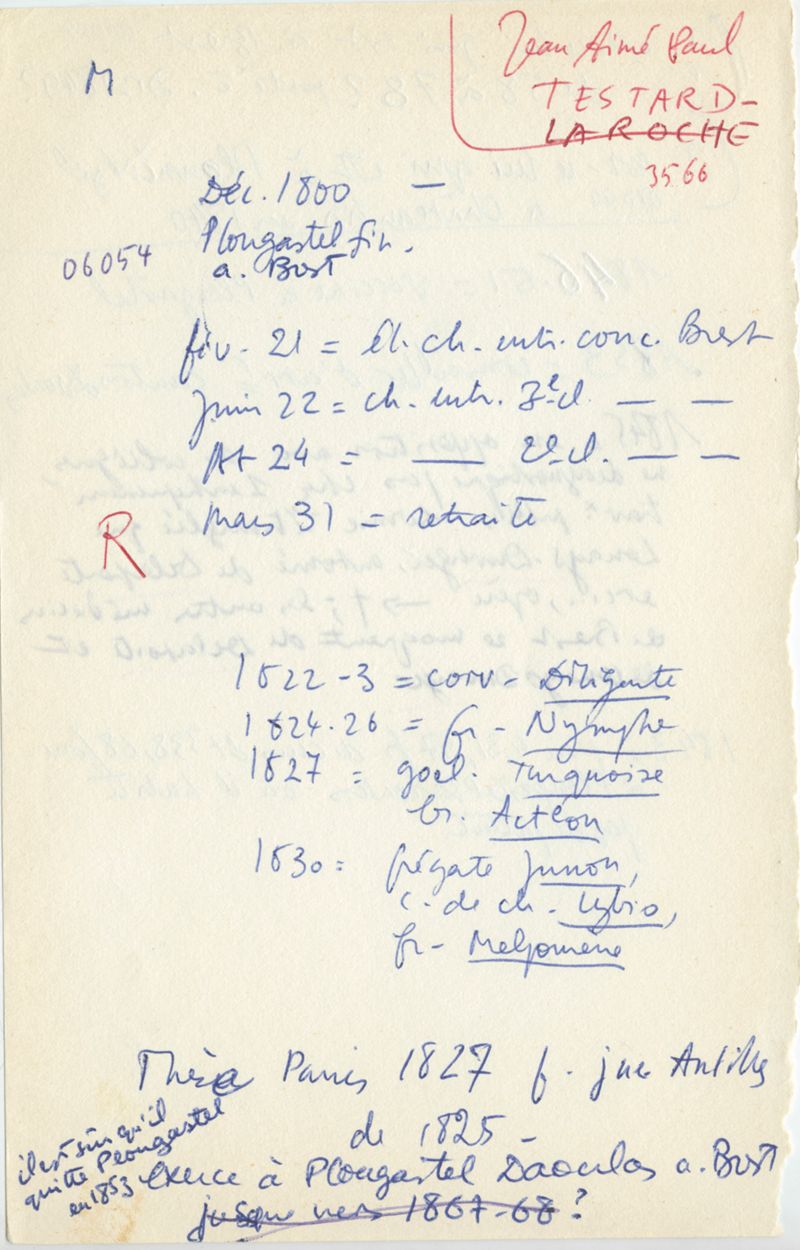 M
Jean Aimé Paul
TESTARD-
LA ROCHE
3566
Déc. 1800 —
06054
Plougastel fin.
a. Brest
fév. 21 = él. ch. entr. conc. Brest
Juin 22 = ch. entr. 3e cl. — —
At 24 = — 2e cl. — —
R
Mars 31 = retraite
1822-3 = corv- Diligente
1824.26 = fr- Nymphe
1827 = goel. Turquoise
br. Actéon
1830 = frégate Junon,
c. de ch. Lybio,
fr- Melpomène
Thèse Paris 1827 f. jne Antilles
de 1825 -
il est sûr qu'il
quitte Plougastel
en 1853
Exerce à Plougastel Daoulas a. Brest
jusque vers 1867-68 ?